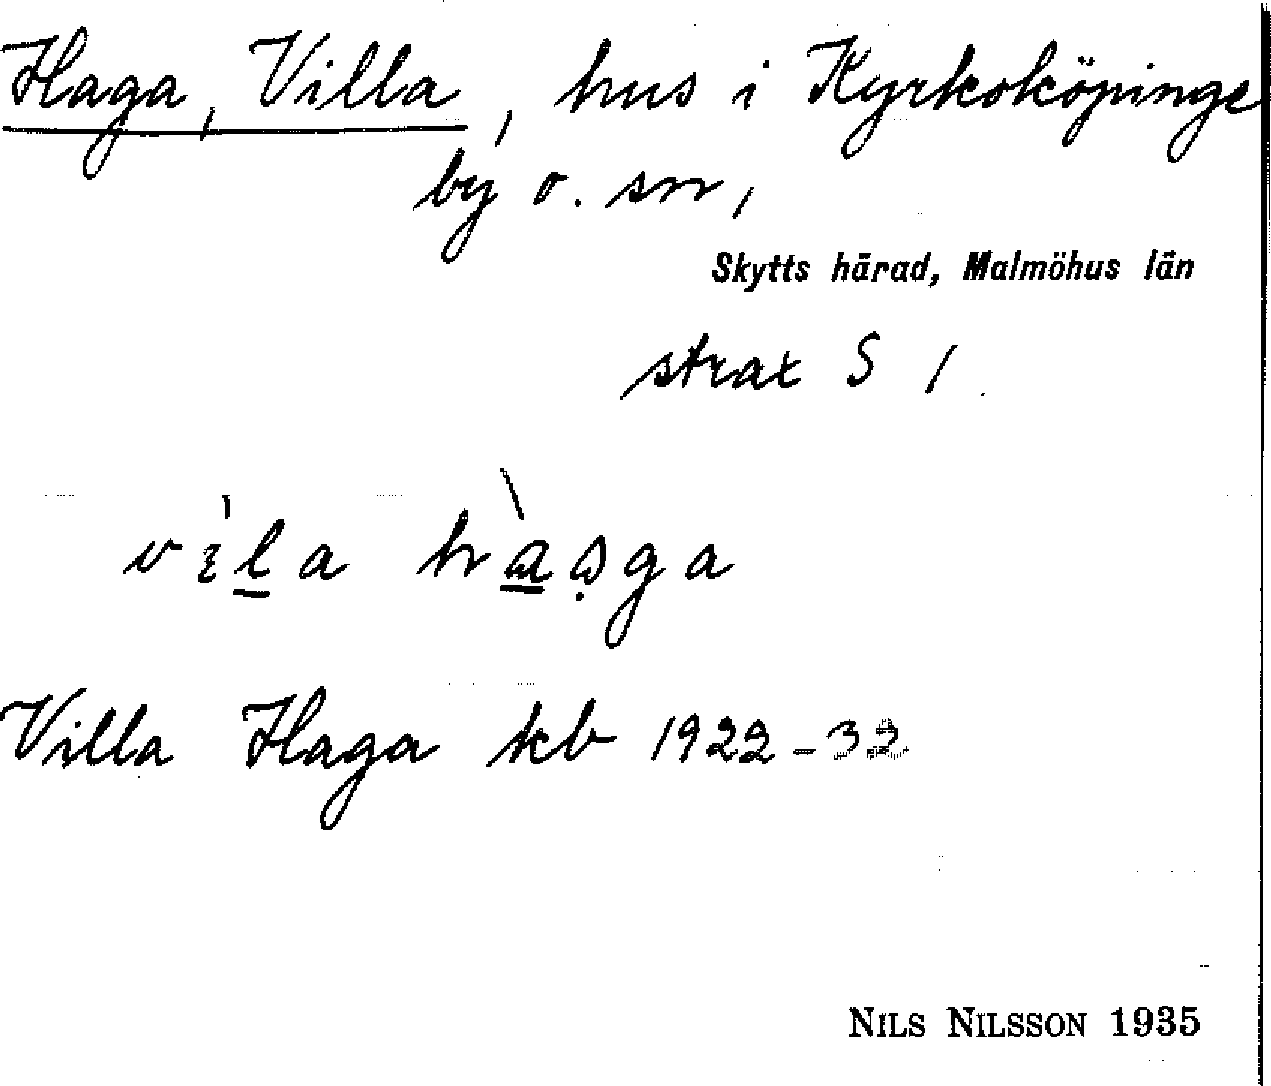 Haga, Villa, hus i Kyrkoköpinge
by o. sn,
Skytts härad, Malmöhus län
strax S /
Villa Haga kb 1922-32
NILS NILSSON 1935